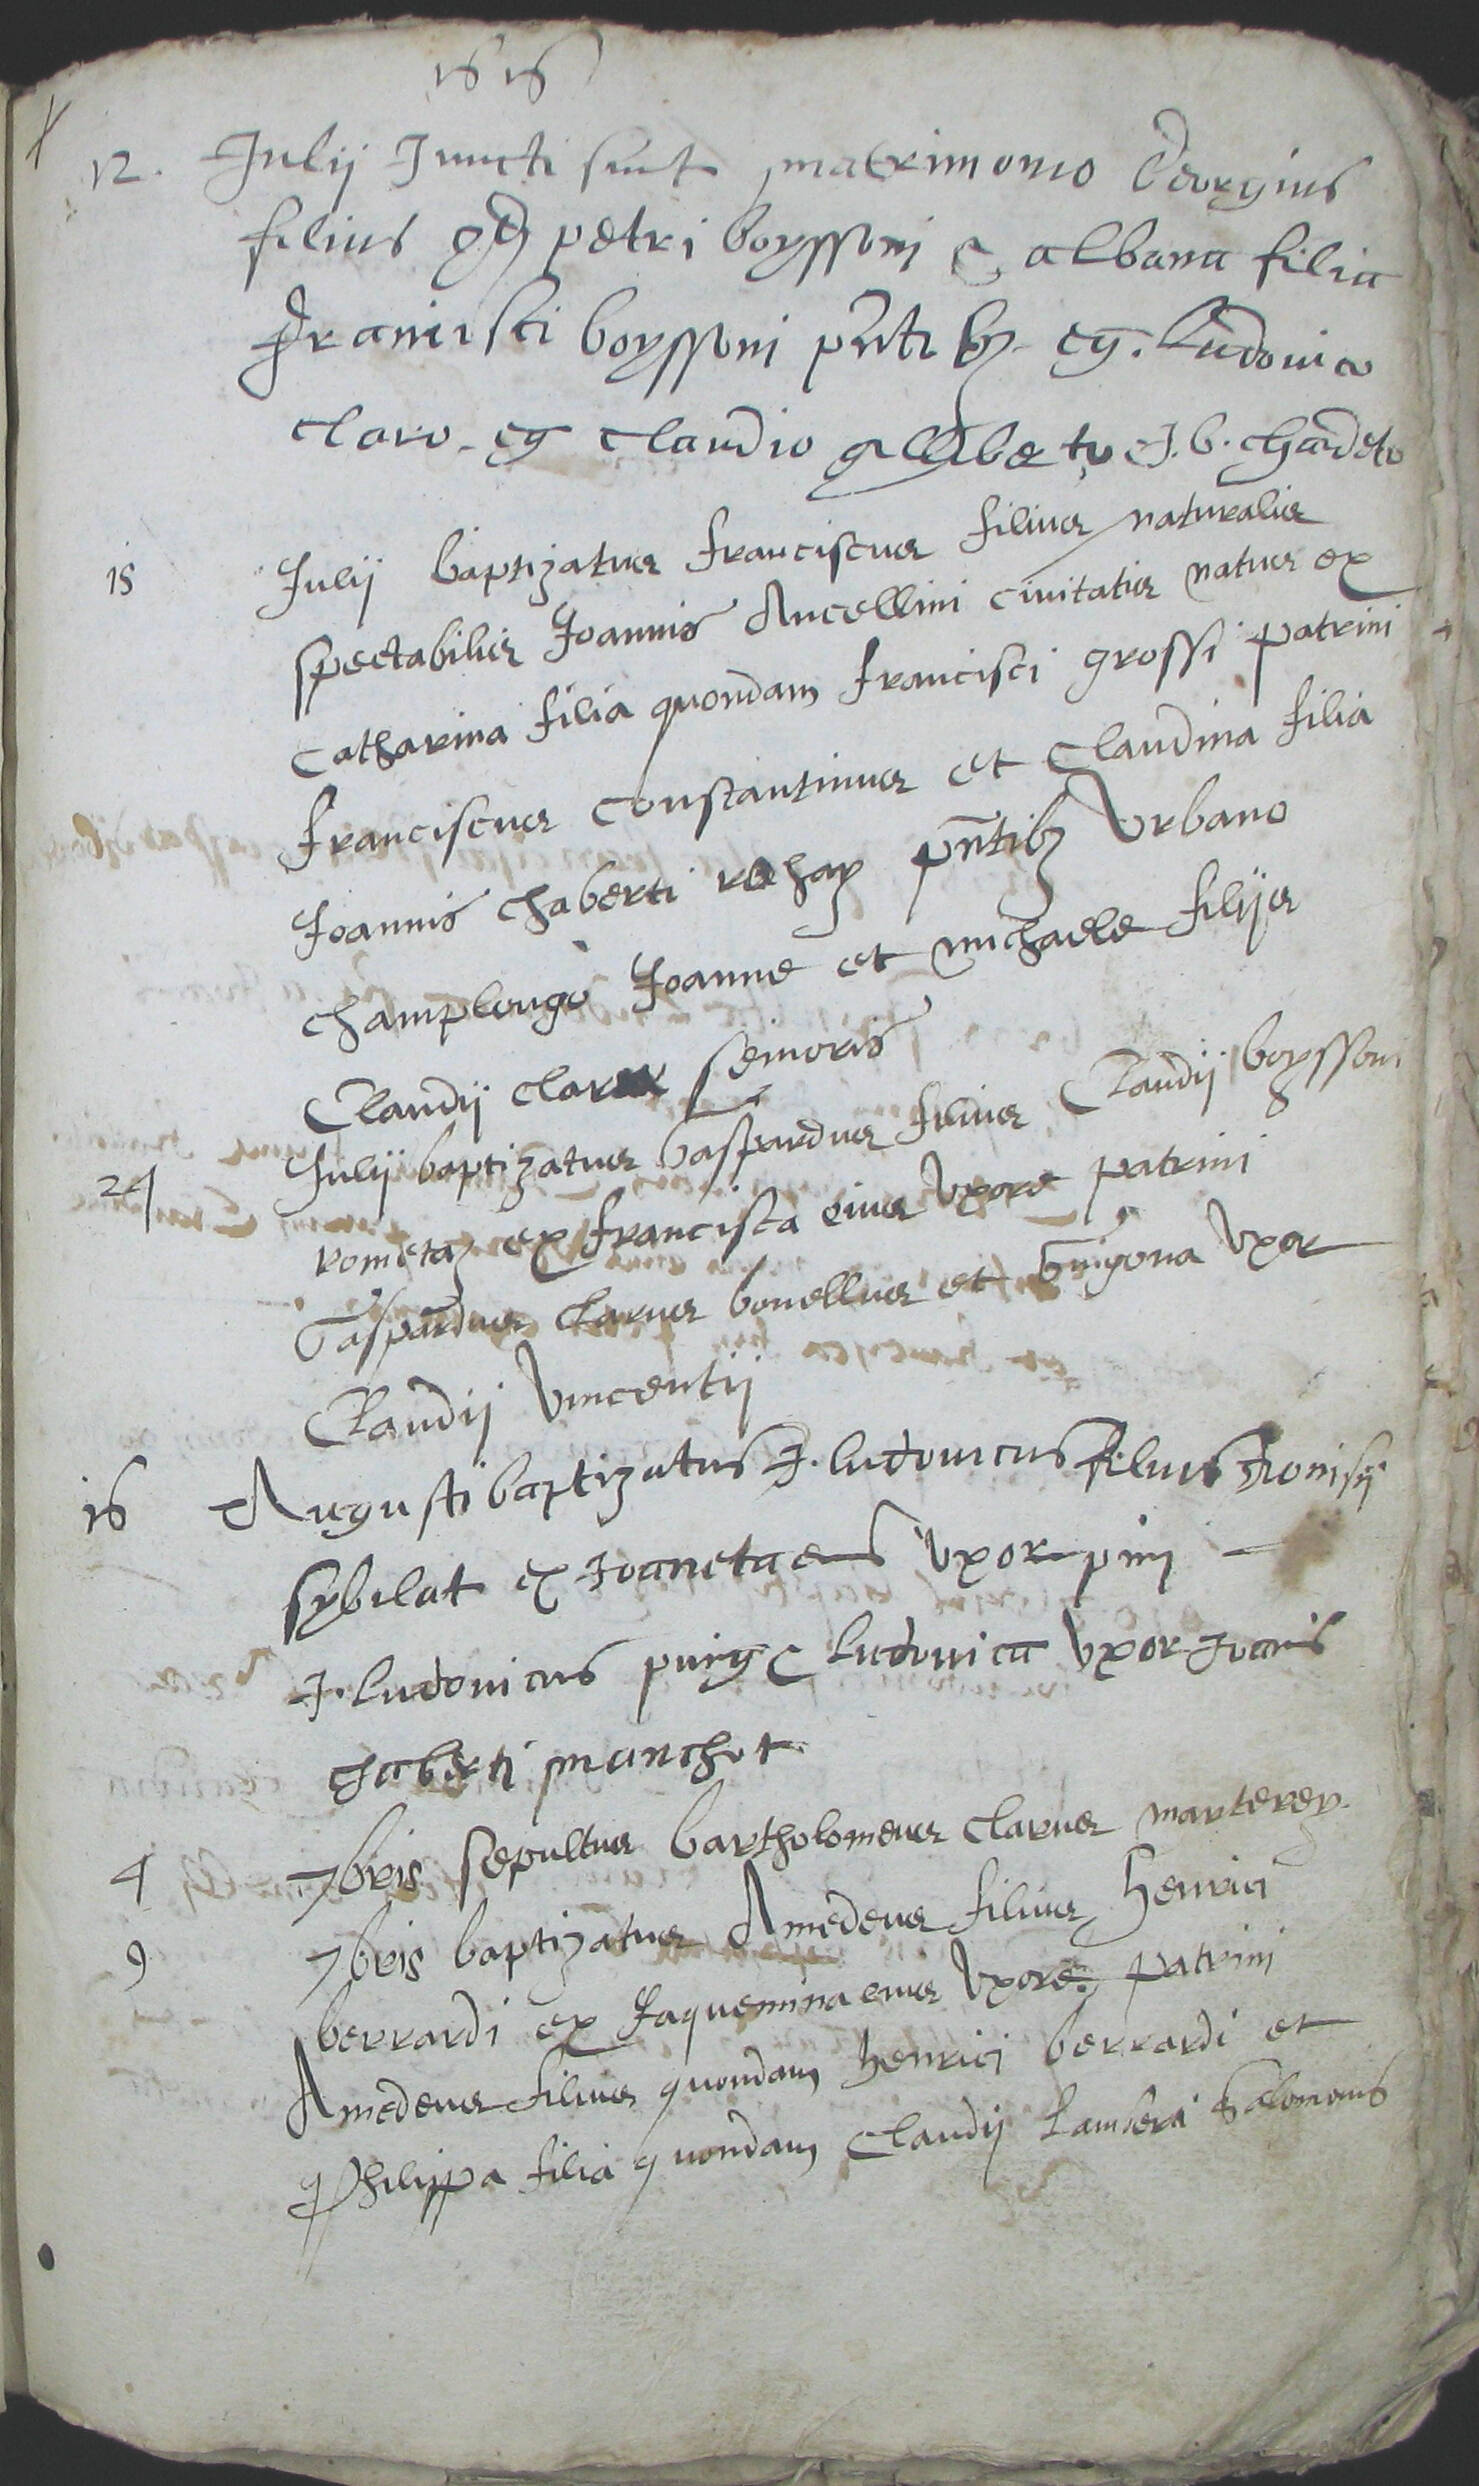 1616
12. Julij Juncti sunt matrimonio Georgius
filius qd petri boyssoni & albana filia
Francisci boyssoni pntibz eg. Ludovico
claro eg claudio gilliberto J. b. chardeto
15 Julij baptizatus franciscus filius naturalis
spectabilis Joannis Ancellini civitatis natus ex
Catharina filia quondam francisci grossi patrini
franciscus constantinus et Claudina filia
Joannis chaberti pntibz Vrbano
champlongo Joanne et michaele filijs
Claudij clari senioris
24 Julij baptizatus gaspardus filius Claudij boyssoni
rometaz ex francisca eius Vxore patrini
Gaspardus clarus bonellus et guigona Vxor
Claudij Vincentij
16 Augusti baptizatus J. ludovicus filius dionisij
sybilat ex Joaneta eius Vxor pini
J. ludovicus puing & ludovica Vxor Joanis
chaberti manchot
4 7bris sepultus bartholomeus clarus marterey.
9 7bris baptizatus Amedeus filius henrici
berrardi ex Jaquemina eius Vxore. patrini
Amedeus filius quondam henrici berrardi et
Philippa filia quondam Claudij Lamberti Salomonis